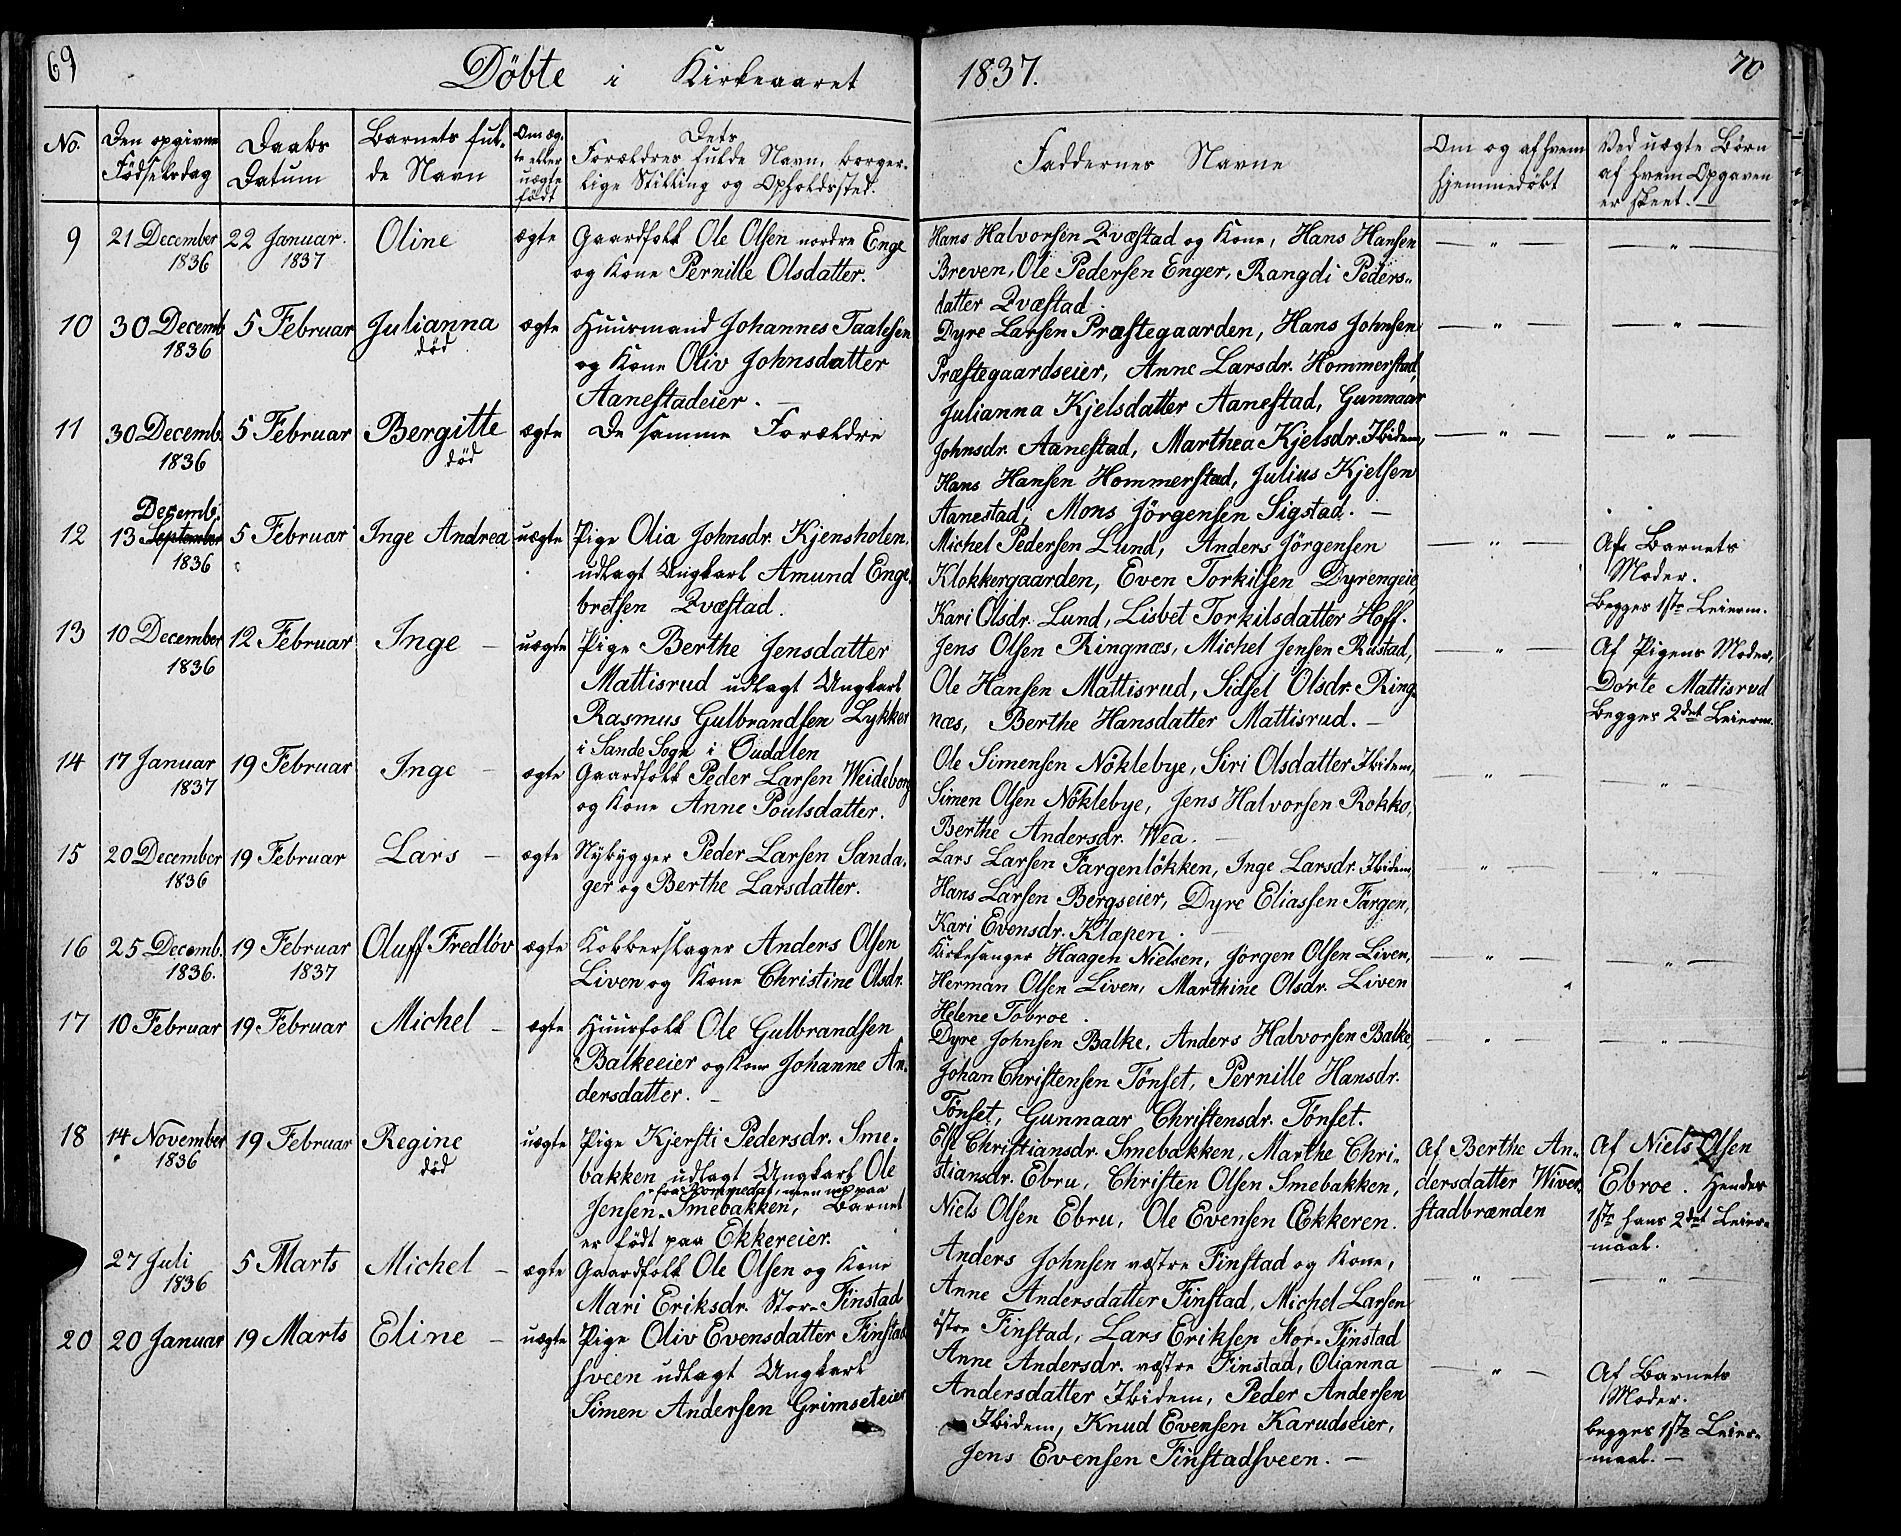 69
Döbte i Kirkeaaret
1837.
70
No.
Den opgivne
Födselsdag
Daabs
Datum
Barnets ful-
de Navn
Om æg-
te eller
uægte
födt
Dets
Forældres fulde Navn, borger-
lige Stilling og Opholdssted.
Faddernes Navne
Om og af hvem
hjemmedöbt
Ved uægte Börn
af hvem Opgaven
er skeet.
9
21 December
1836
22 Januar.
1837
Oline
ægte
Gaardfolk Ole Olsen nordre Enge
og Kone Pernille Olsdatter.
Hans Halvorsen Qvæstad og Kone, Hans Hansen
Breven, Ole Pedersen Enger, Rangdi Peders-
datter Qvæstad.
10
30 Decemb
1836
5 Februar
Julianna
död
ægte
Huusmand Johannes Taalesen
og Kone Oliv Johnsdatter
Aanestadeier.
Dyre Larsen Præstegaarden, Hans Johnsen
Præstegaardseier, Anne Larsdr. Hommerstad,
Julianna Kjelsdatter Aanestad, Gunnaar
11
30 Decemb.
1836
5 Februar
Bergitte
död
ægte
De samme Forældre
Johnsdr. Aanestad, Marthea Kjelsdr. Ibidem,
Hans Hansen Hommerstad, Julius Kjelsen
Aanestad, Mons Jörgensen Sigstad.
12
Decemb.
13 September
1836
5 Februar
Inge Andrea
uægte
Pige Olia Johnsdr. Kjensholen.
udlagt Ungkarl Amund Enge-
bretsen Qvæstad.
Michel Pedersen Lund, Anders Jörgensen
Klokkergaarden, Even Torkilsen Dyrengeie,
Kari Olsdr. Lund, Lisbet Torkilsdatter Hoff.
Af Barnets
Moder.
Begges 1ste Leierm.
13
10 December
1836
12 Februar
Inge
uægte
Pige Berthe Jensdatter
Mattisrud udlagt Ungkarl
Rasmus Gulbrandsen Lykker
i Sande Sogn i Ouddlen
Jens Olsen Ringnæs, Michel Jensen Rustad,
Ole Hansen Mattisrud, Sidsel Olsdr. Ring-
næs, Berthe Hansdatter Mattisrud.
Af Pigens Moder,
Dorte Mattisrud
begges 2det Leierm.
14
17 Januar
1837
19 Februar
Inge
ægte
Gaardfolk Peder Larsen Weideborg
og Kone Anne Poulsdatter.
Ole Simensen Nöklebye, Siri Olsdatter Ibidem,
Simen Olsen Nöklebye, Jens Halvorsen Rokko,
Berthe Andersdr. Wea.
15
20 December
1836
19 Februar
Lars
ægte
Nybygger Peder Larsen Sanda-
ger og Berthe Larsdatter.
Lars Larsen Fargenlökken, Inge Larsdr. Ibidem
Hans Larsen Bergseier, Dyre Eliassen Fargen,
Kari Evensdr. Klæpen.
16
25 Decemb.
1836.
19 Februar
1837
Oluff Fredlöv
ægte
Kobberslager Anders Olsen
Liven og Kone Christine Olsdr.
Kirkesanger Haagen Nielsen, Jörgen Olsen Liven,
Herman Olsen Liven, Marthine Olsdr. Liven
Helene Tobroe.
17
10 Februar
19 Februar
Michel
ægte
Huusfolk Ole Gulbrandsen
Balkeeier og Kone Johanne An-
dersdatter.
Dyre Johnsen Balke, Anders Halvorsen Balke
Johan Christensen Tönset, Pernille Hansdr.
Tönset, Gunnaar Christensdr. Tönset.
18
14 November
1836
19 Februar
Regine
död
uægte
Pige Kjersti Pedersdr. Sme-
bakken udlagt Ungkarl Ole
Jensen Smebakken, Barnet
er födt paa Ekkereier.
Eli Christiansdr. Smebakken, Marthe Chri-
stiansdr. Ebru, Christen Olsen Smebakken,
Niels Olsen Ebru, Ole Evensen Ækkeren.
Af Berthe An-
dersdatter Wiver-
stadbrænden
Af Niels Olsen
Ebroe. Hendes
1ste hans 2det Leier-
maal.
27 Juli
1836
5 Marts
Michel
ægte
Gaardfolk Ole Olsen og Kone
Mari Eriksdr. Stor-Finstad
Anders Johnsen væstre Finstad og Kone,
Anne Andersdatter Finstad, Michel Larsen
östre Finstad, Lars Eriksen Stor-Finstad
20
20 Januar
19 Marts
Eline
uægte
Pige Oliv Evensdatter Finstad
sveen udlagt Ungkarl
Simen Andersen Grimseteier
Anne Andersdr. væstre Finstad, Olianna
Andersdatter Ibidem, Peder Andersen
Ibidem, Knud Evensen Karudseier,
Jens Evensen Finstadsveen.
Af Barnets
Moder.
begges 1ste Leier-
maal.